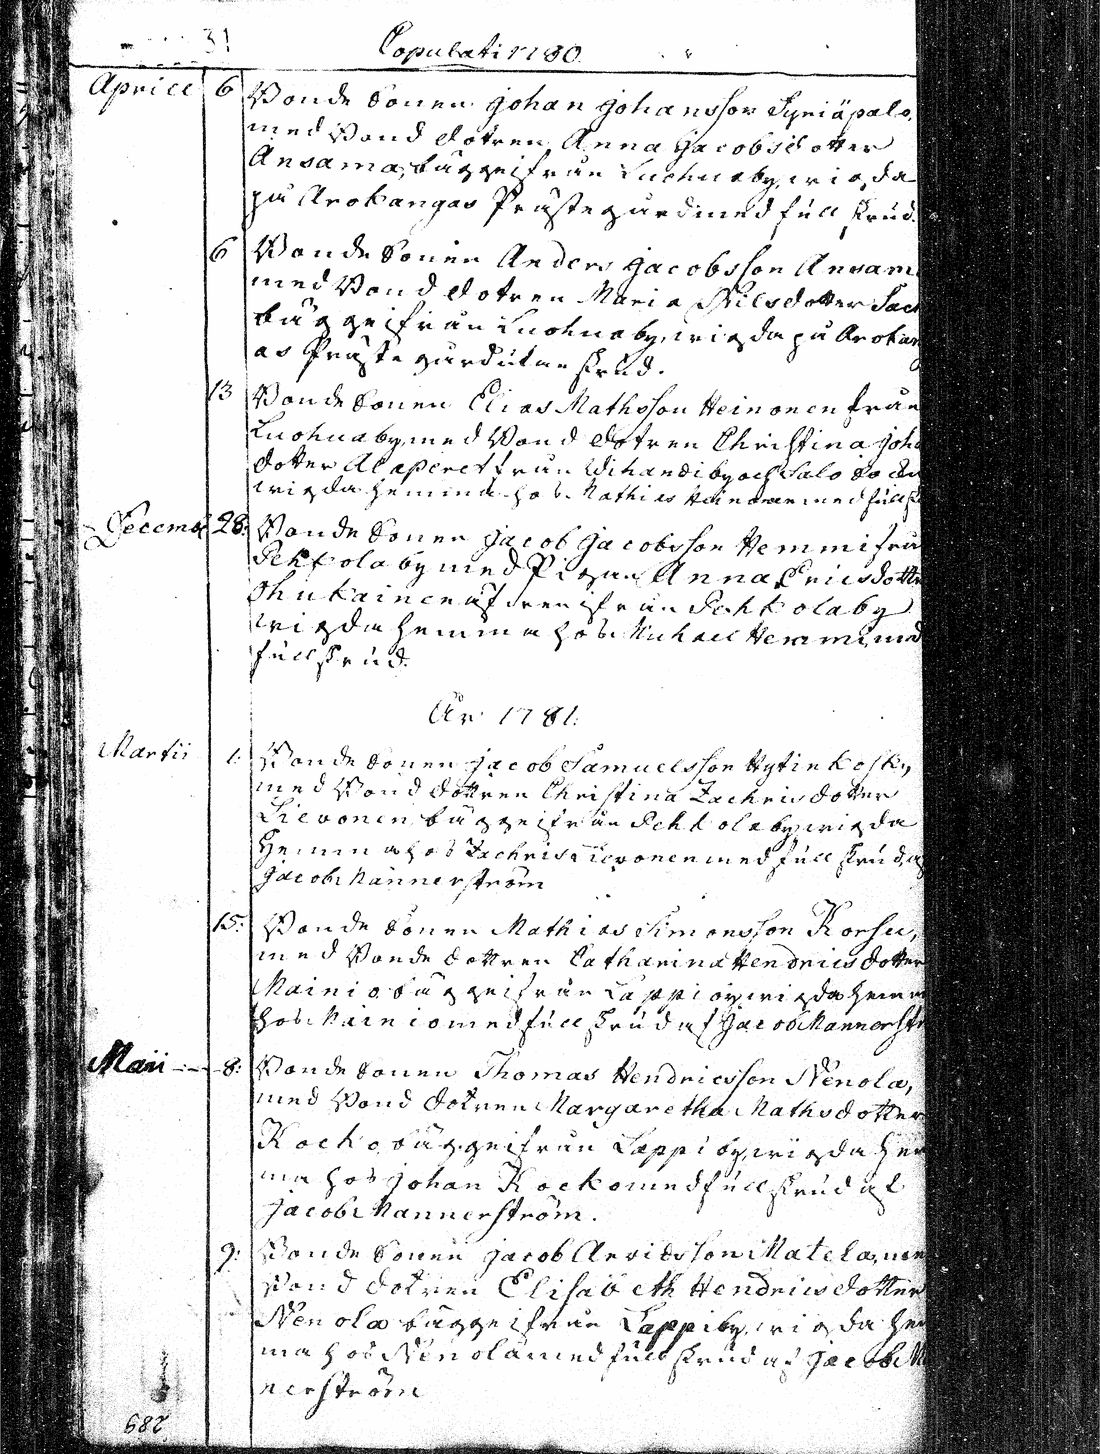 31
Copulati 1780.
Aprill 6 Bonde Sonen Johan Johansson Syriäpalo,
med Bond dotren Anna Jacobsdotter
Ansama, bägge ifrån Luohuaby, wigda
på Arokangas Prästegård med full skrud.
6 Bonde Sonen Anders Jacobsson Ansam
med Bond dotren Maria Nilsdotter
bägge ifrån Luohuaby, wigda på Arokan
as Prästegård utan skrud.
13 Bonde Sonen Elias Mathsson Heinonen från
Luohuaby, med Bond dotren Christina Joh
dotter från by och Salo
wigda hemma hos Mathias Heinonen med full
Decemb 28: Bonde Sonen Jacob Jacobsson Hemmi från
Pehkolaby med Pigan Anna Ericsdotte
Ohukainen ifrån Pehkolaby
wigda hemma hos Michael Hemmi, med
full skrud.
År 1781:
Martii 1: Bonde Sonen Jacob Samuelsson Hytinkoski,
med Bond dottren Christina Zachrisdotter
Lievonen, bägge ifrån Pehkolaby, wigda
hemma hos Zachris Lievonen med full skrud, af
Jacob Mannerström
15: Bonde Sonen Mathias Simonsson Korhu,
med Bonde dottren Catharina Hendricsdotter
Mainio, bägge ifrån Lappi by, wigda hemm
hos Mainio med full skrud af Jacob Mannerstr
Maii 8: Bonde Sonen Thomas Hendricsson Nenola,
med Bond dotren Margaretha Mathsdotter
Kocko, bägge ifrån Lappi by, wigda hem
ma hos Johan Kocko med full skrud af
Jacob Mannerström.
9: Bonde Sonen Jacob Arvidsson Matela, med
Bond dotren Elisabeth Hendricsdotter
Nenola bägge ifrån Lappi by, wigda hem
ma hos Nenola med full skrud af Jacob M
nerström
682